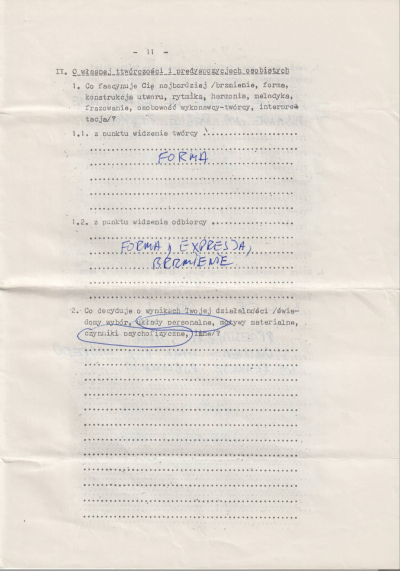 - 11 -
II. O własnej ttwórczości i predyspozycjach osobistych
1. Co fascynuje Cię najbardziej /brzmienie, forma,
konstrukcja utworu, rytmika, harmonia, melodyka,
frazowanie, osobowość wykonawcy-twórcy, interpre
tacja/?
1.1. z punktu widzenia twórcy ......................
FORMA
1.2. z punktu widzenia odbiorcy ....................
FORMA, EXPRESJA,
BRZMIENIE
2. Co decyduje o wynikach Twojej działalności /świa-
domy wybór, układy personalne, motywy materialne,
czynniki psychofizyczne, inne/?